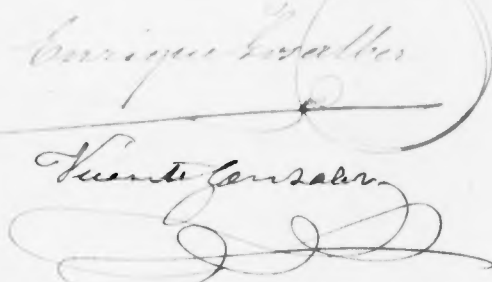 Enrique Ewalber
Vicente Gonzalez